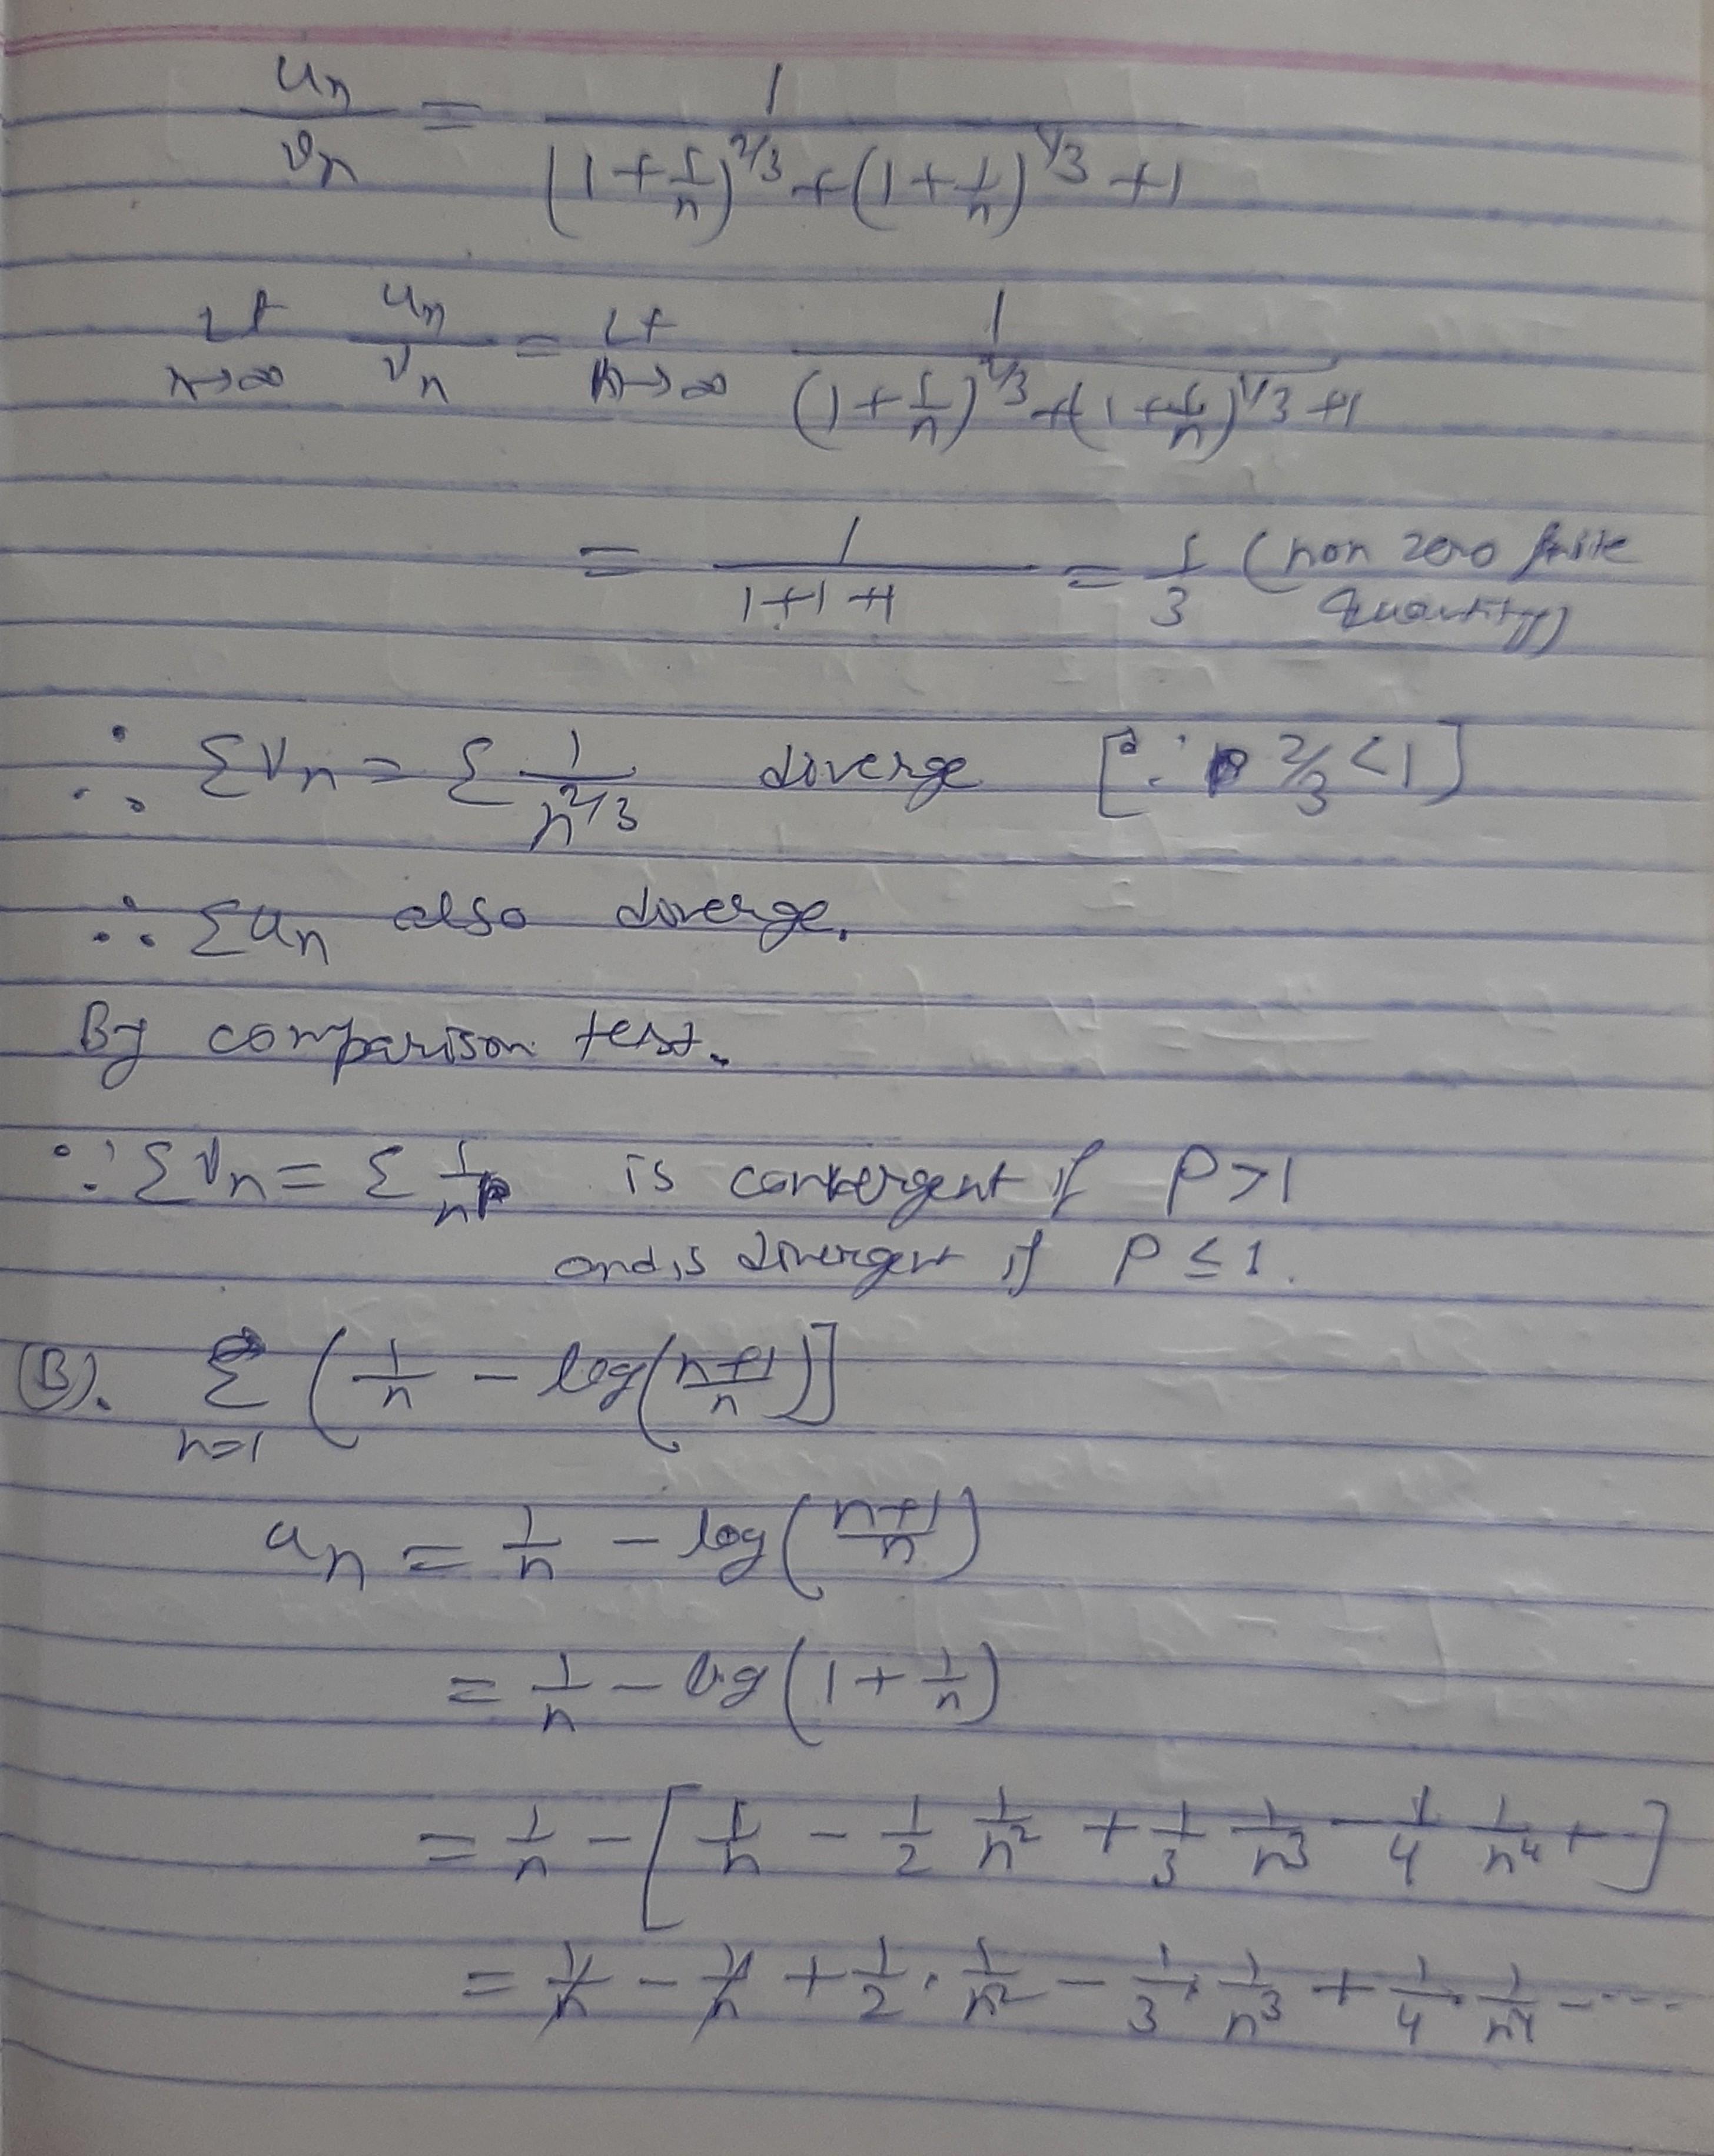 un/vn = 1/((1+1/n)^2/3 + (1+1/n)^1/3 + 1)
Lt n→∞ un/vn = Lt n→∞ 1/((1+1/n)^2/3 + (1+1/n)^1/3 + 1)
= 1/(1+1+1) = 1/3 (non zero finite quantity)
∴ Σvn = Σ 1/n^2/3 diverge [∵ 2/3 < 1]
∴ Σun also diverge.
By comparison test.
∵ Σvn = Σ 1/n^p is convergent if P>1
and is divergent if P ≤ 1.
(B). Σ n=1 (1/n - log(n+1/n)]
un = 1/n - log(n+1/n)
= 1/n - log(1 + 1/n)
= 1/n - [1/n - 1/2 1/n² + 1/3 1/n³ - 1/4 1/n⁴ + -]
= 1/n - 1/n + 1/2 . 1/n² - 1/3 . 1/n³ + 1/4 . 1/n⁴ - ....